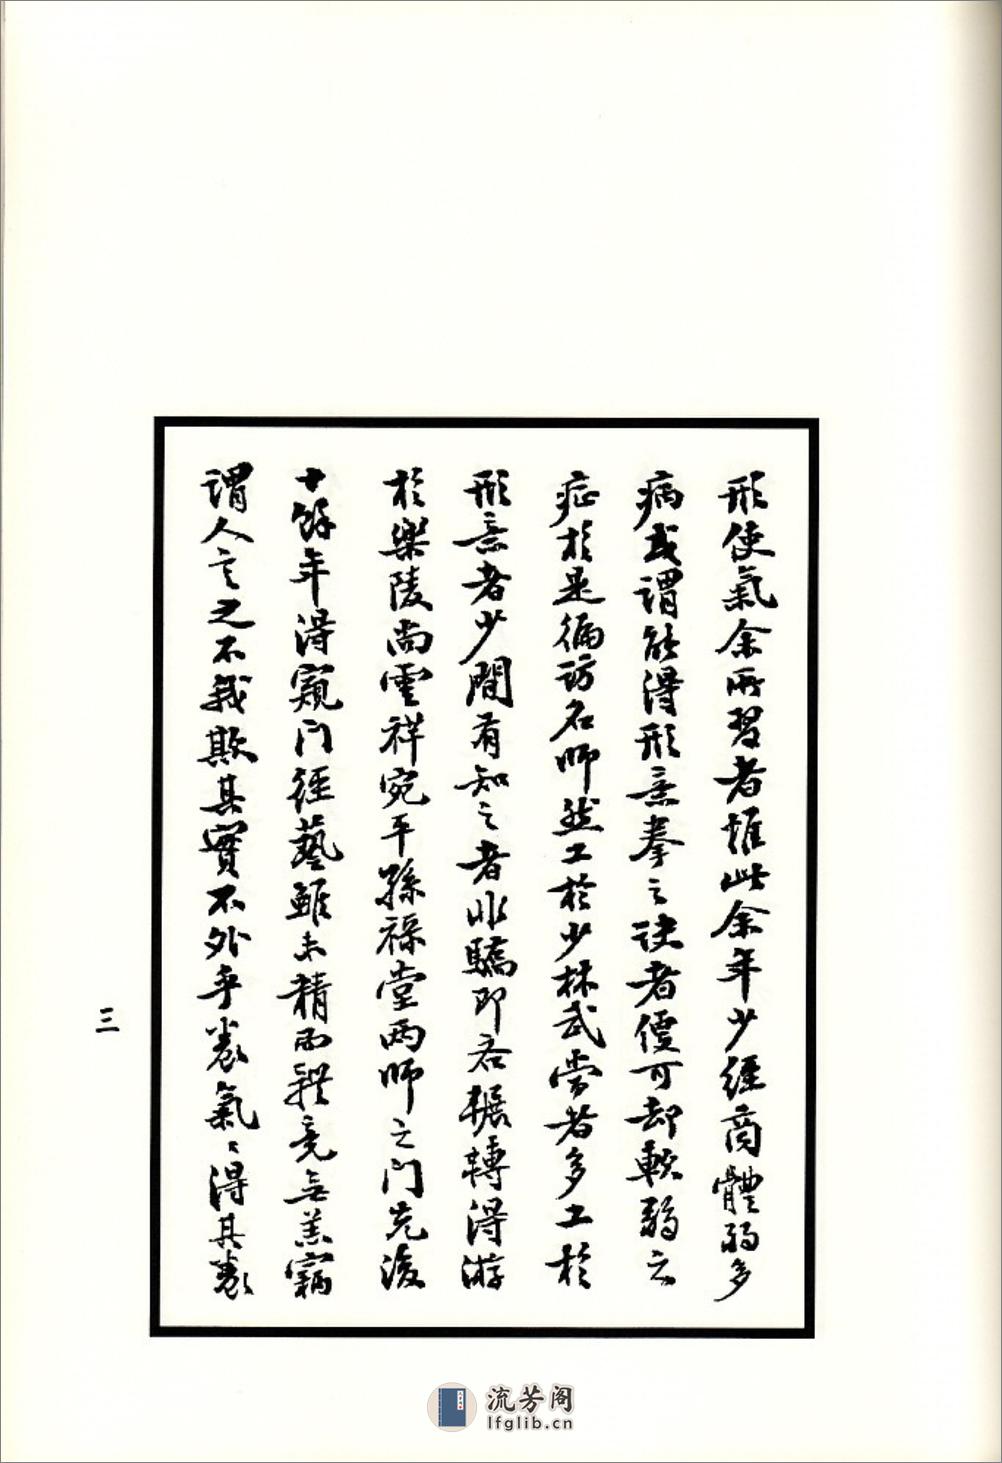 形使氣余所習者惟此余年少經商體弱多
病或謂能得形意拳之訣者便可却軟弱之
症於是徧訪名師然工於少林武當者多工於
形意者少間有知之者非驕即吝輾轉得游
於樂陵尚雲祥宛平孫祿堂兩師之門先後
十餘年得窺門徑藝雖未精而體竟無恙竊
謂人言之不我欺其實不外乎養氣氣得其養
三
流芳阁
lfglib.cn